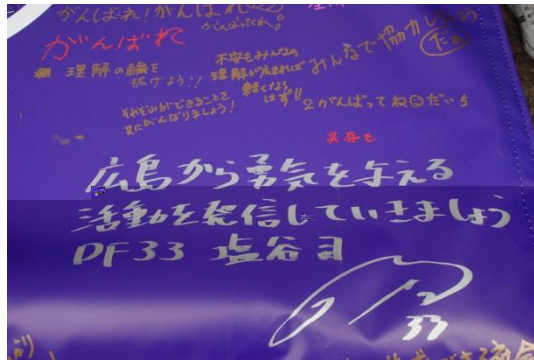 がんばれ!がんばれ
がんばってね。
がんばれ
理解の輪を
拡げよう!!
不安もみんなの
理解が広まれば
軽くなる
はず!!
みんなで協力しよう
それぞれができることを
共にがんばりましょう!
2がんばってね
共存を
広島から勇気を与える
活動を発信していきましょう
DF33 塩谷司
33